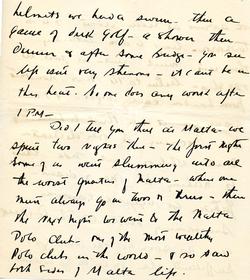 helmets we had a swim. then a
game of deck Golf – a shower then
Dinner & after some bridge – You see
life isn't very strenuous – it can't be in
this heat. No one does any work after
1 PM –
Did I tell you that at Malta we
spent two nights there – The first night
some of us went slumming into all
the worst quarters of Malta – where one
must always go in twos or threes – then
the next night we went to the Malta
Polo Club – one of the most wealthy
Polo clubs in the world – & so saw
both sides of Malta life.